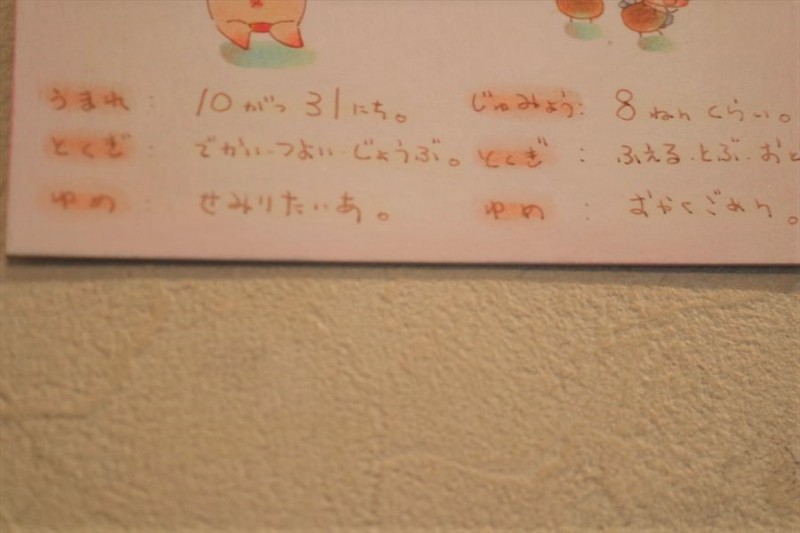 うまれ： 10がつ 31にち。
とくぎ： でかい・つよい・じょうぶ。
ゆめ： せみりたいあ。
じゅみょう： 8ねんくらい。
とくぎ： ふえる・とぶ・おと
ゆめ： おやくごめん。